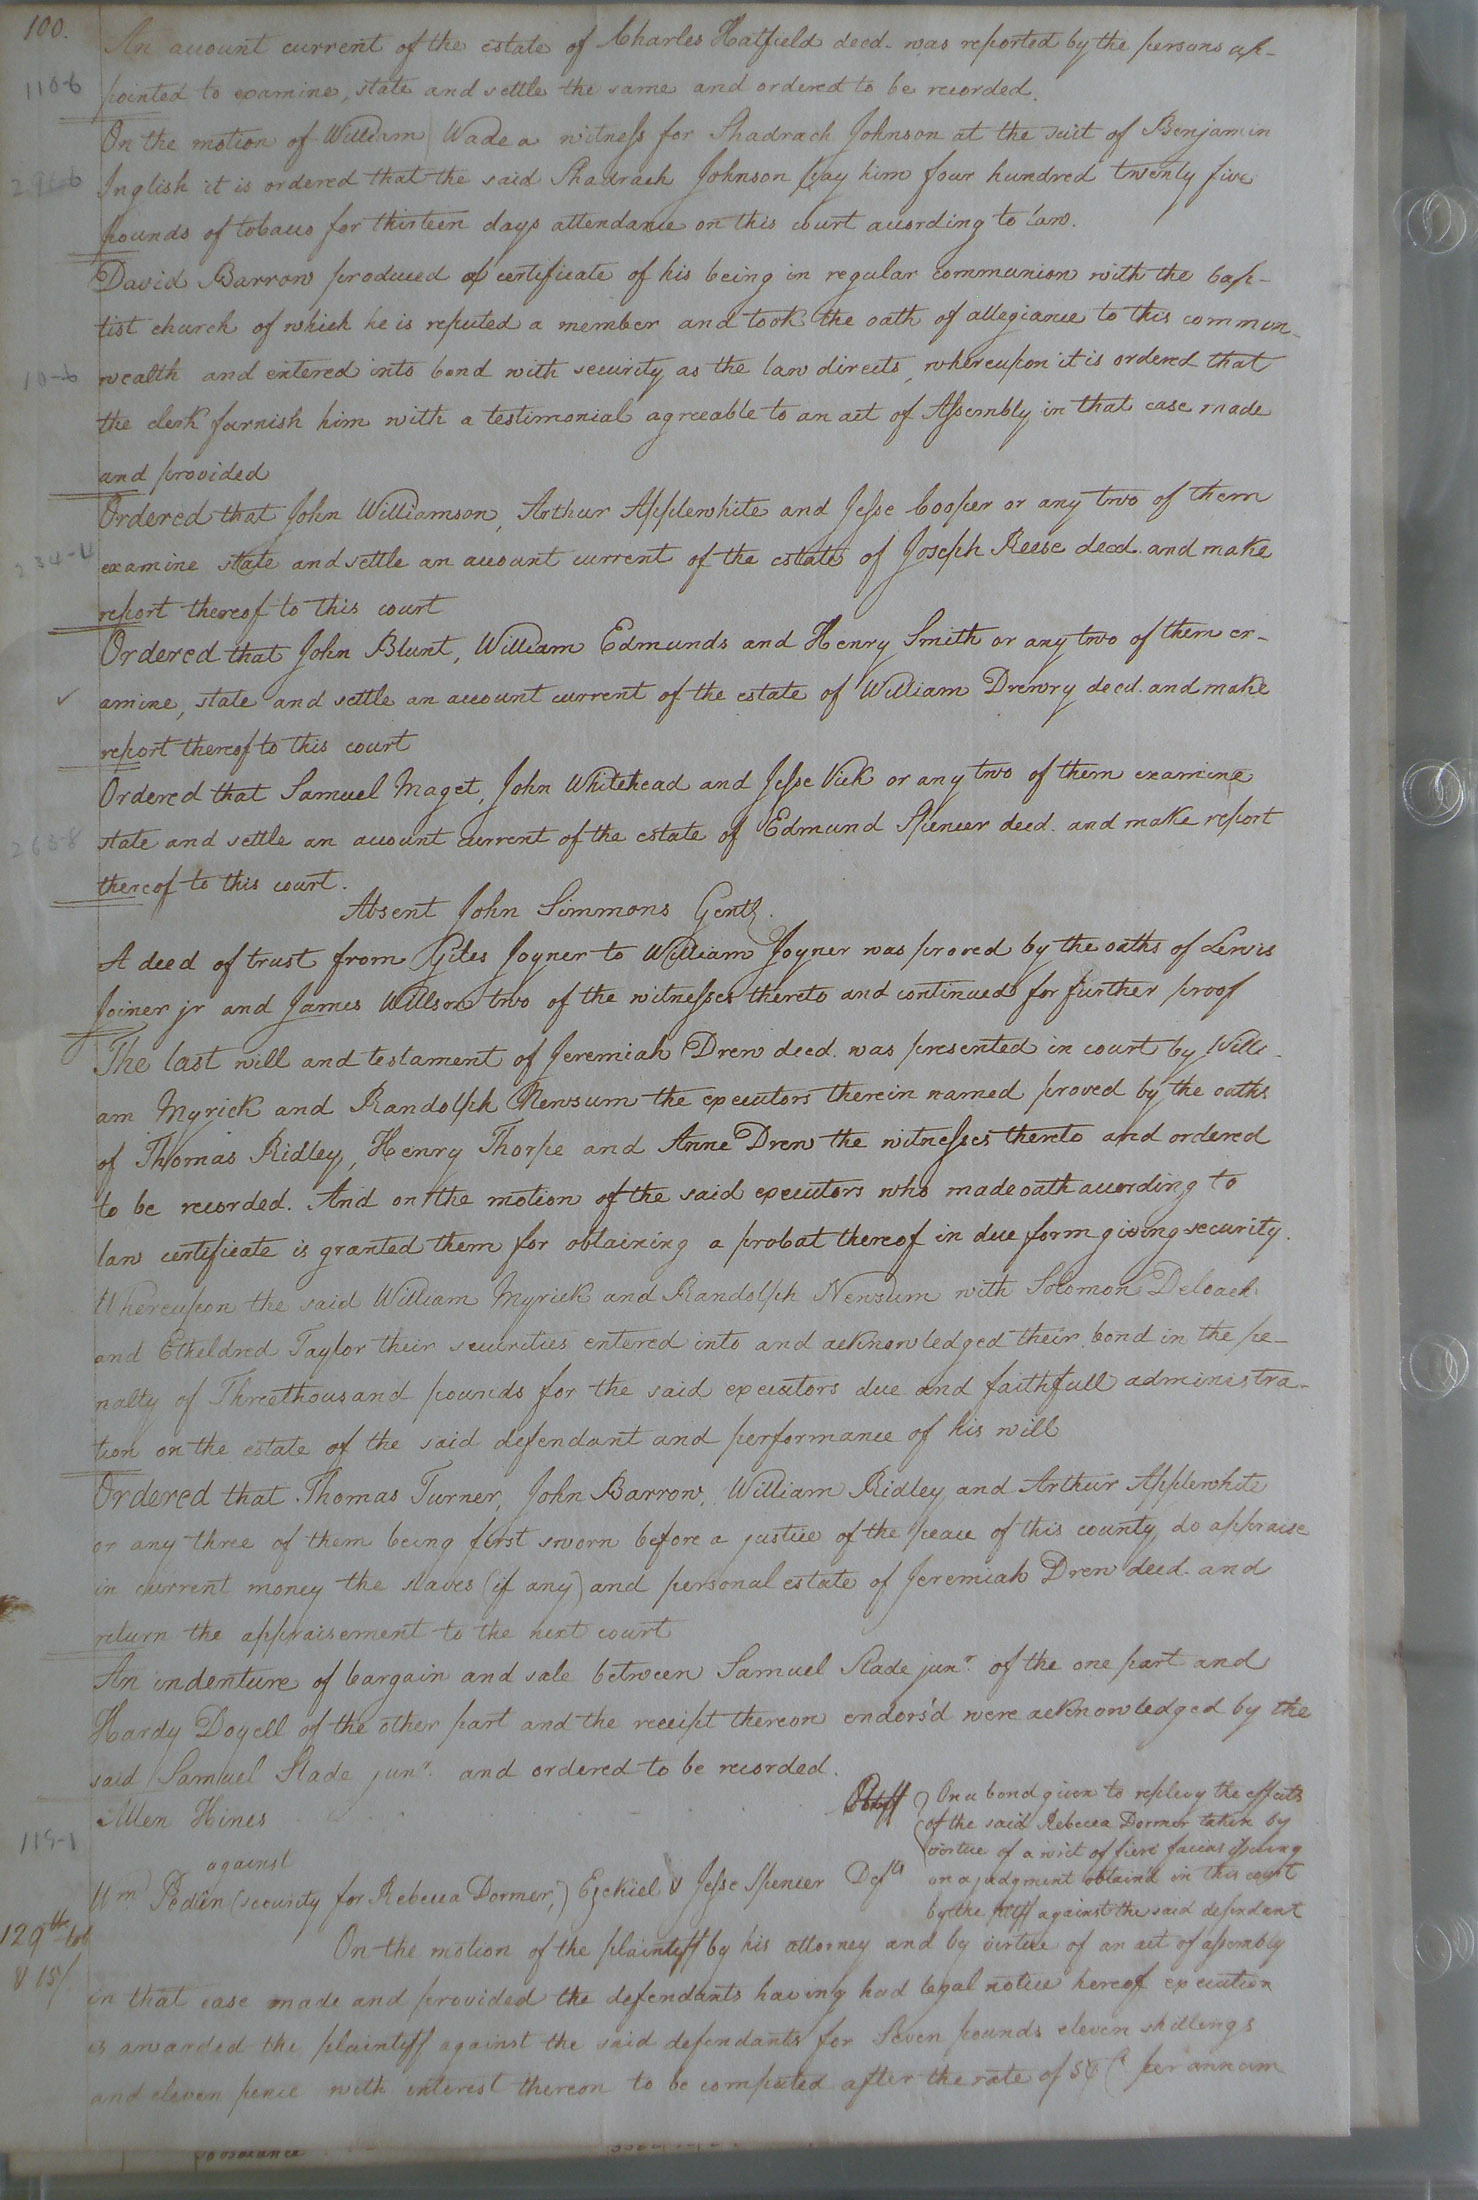 100.
An account current of the estate of Charles Hatfield decd. was reported by the persons ap-
110-6
pointed to examine, state and settle the same and ordered to be recorded.
On the motion of William Wade a witness for Shadrach Johnson at the suit of Benjamin
Inglish it is ordered that the said Shadrach Johnson pay him four hundred twenty five
pounds of tobacco for thirteen days attendance on this court according to law.
David Barrow produced a certificate of his being in regular communion with the bap-
tist church of which he is reputed a member and took the oath of allegiance to this common-
10-6
wealth and entered into bond with security as the law directs, whereupon it is ordered that
the clerk furnish him with a testimonial agreeable to an act of Assembly in that case made
and provided
Ordered that John Williamson, Arthur Applewhite and Jesse Cooper or any two of them
234-4
examine state and settle an account current of the estate of Joseph Reese decd. and make
report thereof to this court
Ordered that John Blunt, William Edmunds and Henry Smith or any two of them ex-
amine, state and settle an account current of the estate of William Drewry decd. and make
report thereof to this court
Ordered that Samuel Maget, John Whitehead and Jesse Vick or any two of them examine
263-8
state and settle an account current of the estate of Edmund Spencer decd. and make report
thereof to this court.
Absent John Simmons Gentl.
A deed of trust from Giles Joyner to William Joyner was proved by the oaths of Lewis
Joiner jr and James Willson two of the witnesses thereto and continued for further proof
The last will and testament of Jeremiah Drew decd. was presented in court by Willi-
am Myrick and Randolph Newsum the executors therein named proved by the oaths
of Thomas Ridley, Henry Thorpe and Anne Drew the witnesses thereto and ordered
to be recorded. And on the motion of the said executors who made oath according to
law certificate is granted them for obtaining a probat thereof in due form giving security.
Whereupon the said William Myrick and Randolph Newsum with Solomon Deloach
and Etheldred Taylor their securities entered into and acknowledged their bond in the pe-
nalty of Threethousand pounds for the said executors due and faithfull administra-
tion on the estate of the said defendant and performance of his will
Ordered that Thomas Turner, John Barrow, William Ridley and Arthur Applewhite
or any three of them being first sworn before a justice of the peace of this county do appraise
in current money the slaves (if any) and personal estate of Jeremiah Drew decd. and
return the appraisement to the next court
An indenture of bargain and sale between Samuel Slade junr. of the one part and
Hardy Doyell of the other part and the receipt thereon endors'd were acknowledged by the
said Samuel Slade junr. and ordered to be recorded.
Allen Hines Pltiff
119-1
against
Wm. Peden (security for Rebecca Dormer,) Ezekiel & Jesse Spencer Defts
On a bond given to replevy the effects
of the said Rebecca Dormer taken by
virtue of a writ of fieri facias issuing
on a judgment obtain'd in this court
by the pltff against the said defendant
129 lb tob
& 15/.
On the motion of the plaintiff by his attorney and by virtue of an act of assembly
in that case made and provided the defendants having had legal notice hereof execution
is awarded the plaintiff against the said defendants for Seven pounds eleven shillings
and eleven pence with interest thereon to be computed after the rate of 5 per annum